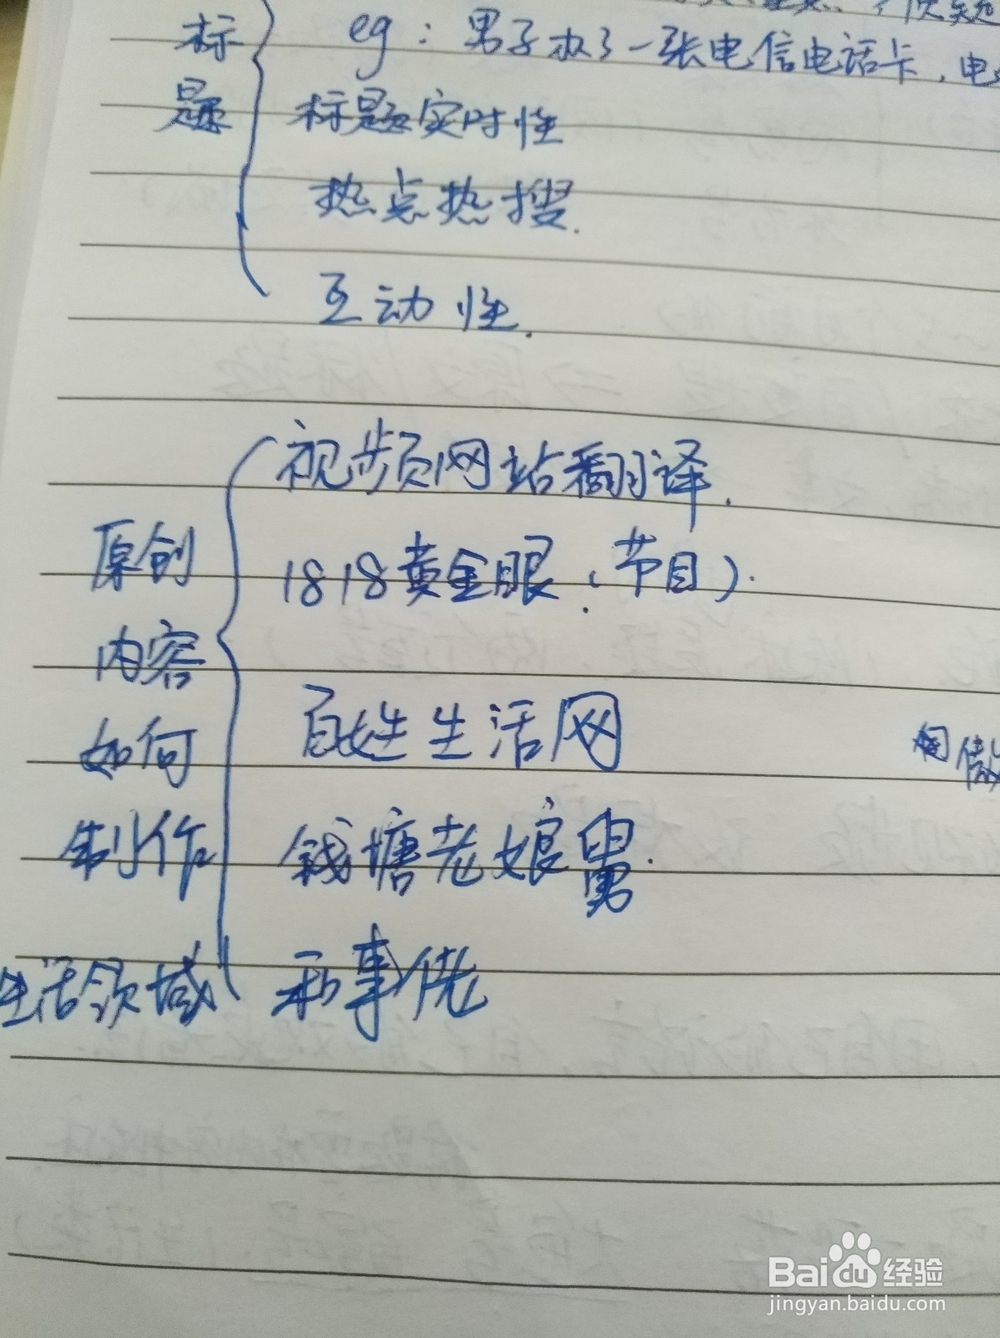 标题
eg：男子办了一张电信电话卡，电
标题实时性
热点热搜.
互动性.
原创内容如何制作
生活领域
视频网站翻译.
1818黄金眼（节目）.
百姓生活网
钱塘老娘舅.
和事佬
Baidu经验
jingyan.baidu.com